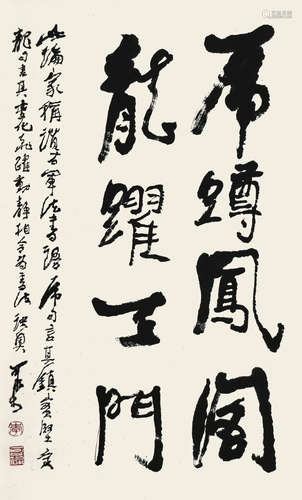 虎蹲鳳閣
龍躍天門
此論家稱讚右軍法書語虎句言其鎮實堅定
龍句言其變化飛躍動靜相合為書法秘奧 可染